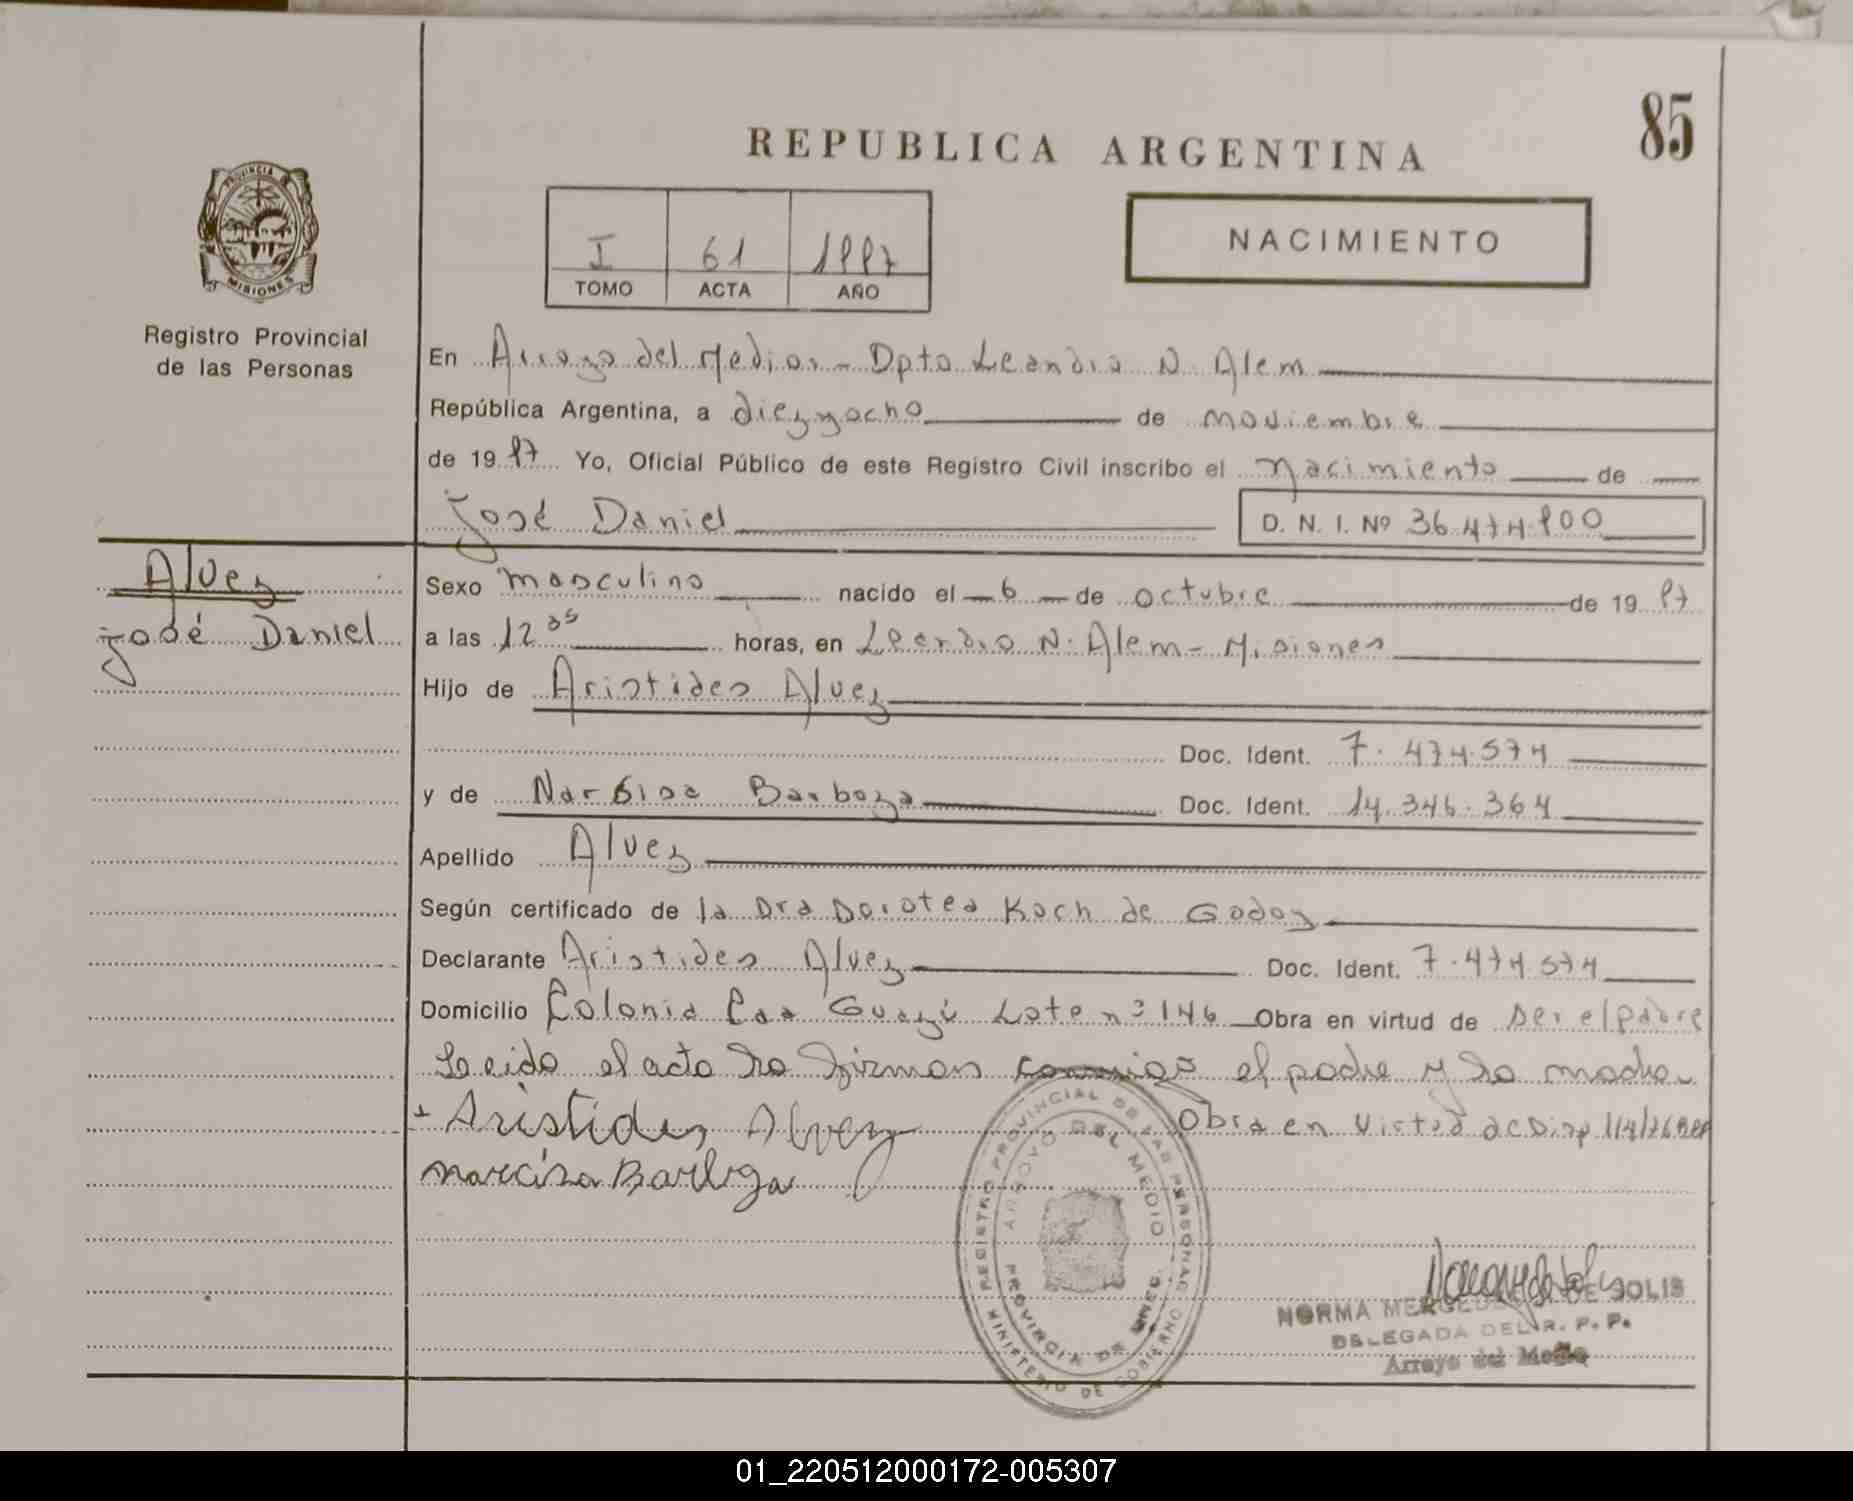 85
REPUBLICA ARGENTINA
PROVINCIA DE
MISIONES
Registro Provincial
de las Personas
I 61 1997
TOMO ACTA AÑO
NACIMIENTO
En Arroyo del Medio - Dpto Leandro N. Alem
República Argentina, a diezyocho de noviembre
de 1997 Yo, Oficial Público de este Registro Civil inscribo el nacimiento de
José Daniel D. N. I. Nº 36.474.900
Alvez
José Daniel
Sexo masculino nacido el 6 de octubre de 1997
a las 12 35 horas, en Leandro N. Alem - Misiones
Hijo de Aristides Alvez
Doc. Ident. 7.474.574
y de Narcisa Barboza Doc. Ident. 14.346.364
Apellido Alvez
Según certificado de la Dra Dorotea Koch de Godoy
Declarante Aristides Alvez Doc. Ident. 7.474.574
Domicilio Colonia Caa Guazú Lote nº 146 Obra en virtud de ser el padre
Leida el acta la firman conmigo el padre y la madre
+ Aristides Alvez Obra en Virtud de Disp 114/76
Narcisa Barboza
REGISTRO PROVINCIAL DE LAS PERSONAS
MINISTERIO DE GOBIERNO
ARROYO DEL MEDIO
PROVINCIA DE
NORMA MERCEDES DE SOLIS
DELEGADA DEL R. P. P.
Arroyo del Medio
01_220512000172-005307